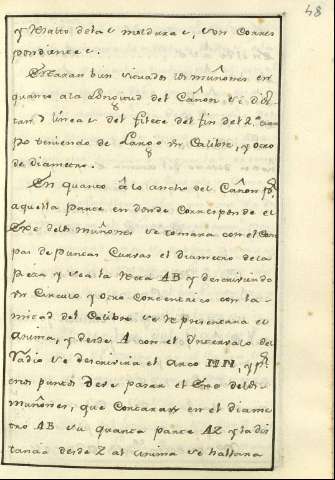 48
y resalto de las molduras, son corres
pondientes.
Estaran bien situados los muñones en
quanto a la Longitud del Cañon si dis
tan 7 lineas del filete del fin del 2.º cuer
po teniendo de Largo un Calibre, y otro
de diametro.
En quanto â lo ancho del Cañon pr
aquella parte en donde corresponde el
Exe de los muñones se tomara con el Com
pas de Puntas Curvas el diametro de la
pieza y sea la recta AB y descriviendo
un Circulo y otro Concentrico con la
mitad del Calibre se representara el
anima, y desde A con el Intervalo del
Radio se descrivira el arco MN, y pr
estos puntos deve pasar el Exo de los
muñones, que Contaran en el diame
tro AB su quarta parte AZ y la dis
tancia desde Z al anima se hallara